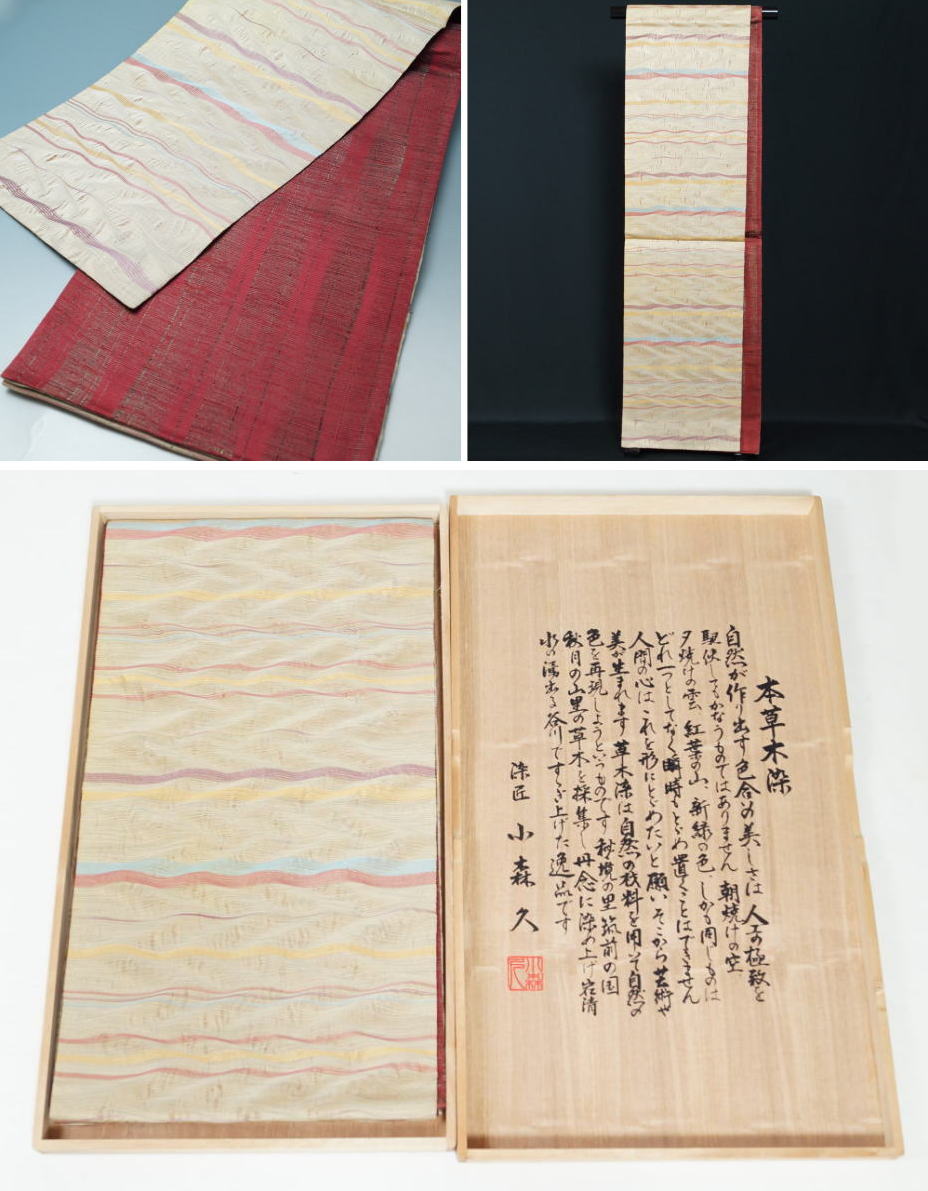 本草木染
自然が作り出す色合の美しさは 人工の極致を
駆使してもかなうものではありません 朝焼けの空
夕焼けの雲 紅葉の山、新緑の色、しかも同じものは
どれ一つとしてなく瞬時もとどめ置くことはできません
人間の心はこれを形にとどめたいと願い そこから芸術や
美が生まれます 草木染は自然の材料を用いて自然の
色を再現しようというものです 秘境の里 筑前の国
秋月の山里の草木を採集し 丹念に染め上げ 岩清
水の湧出る谷川ですすぎ上げた逸品です
染匠 小森久